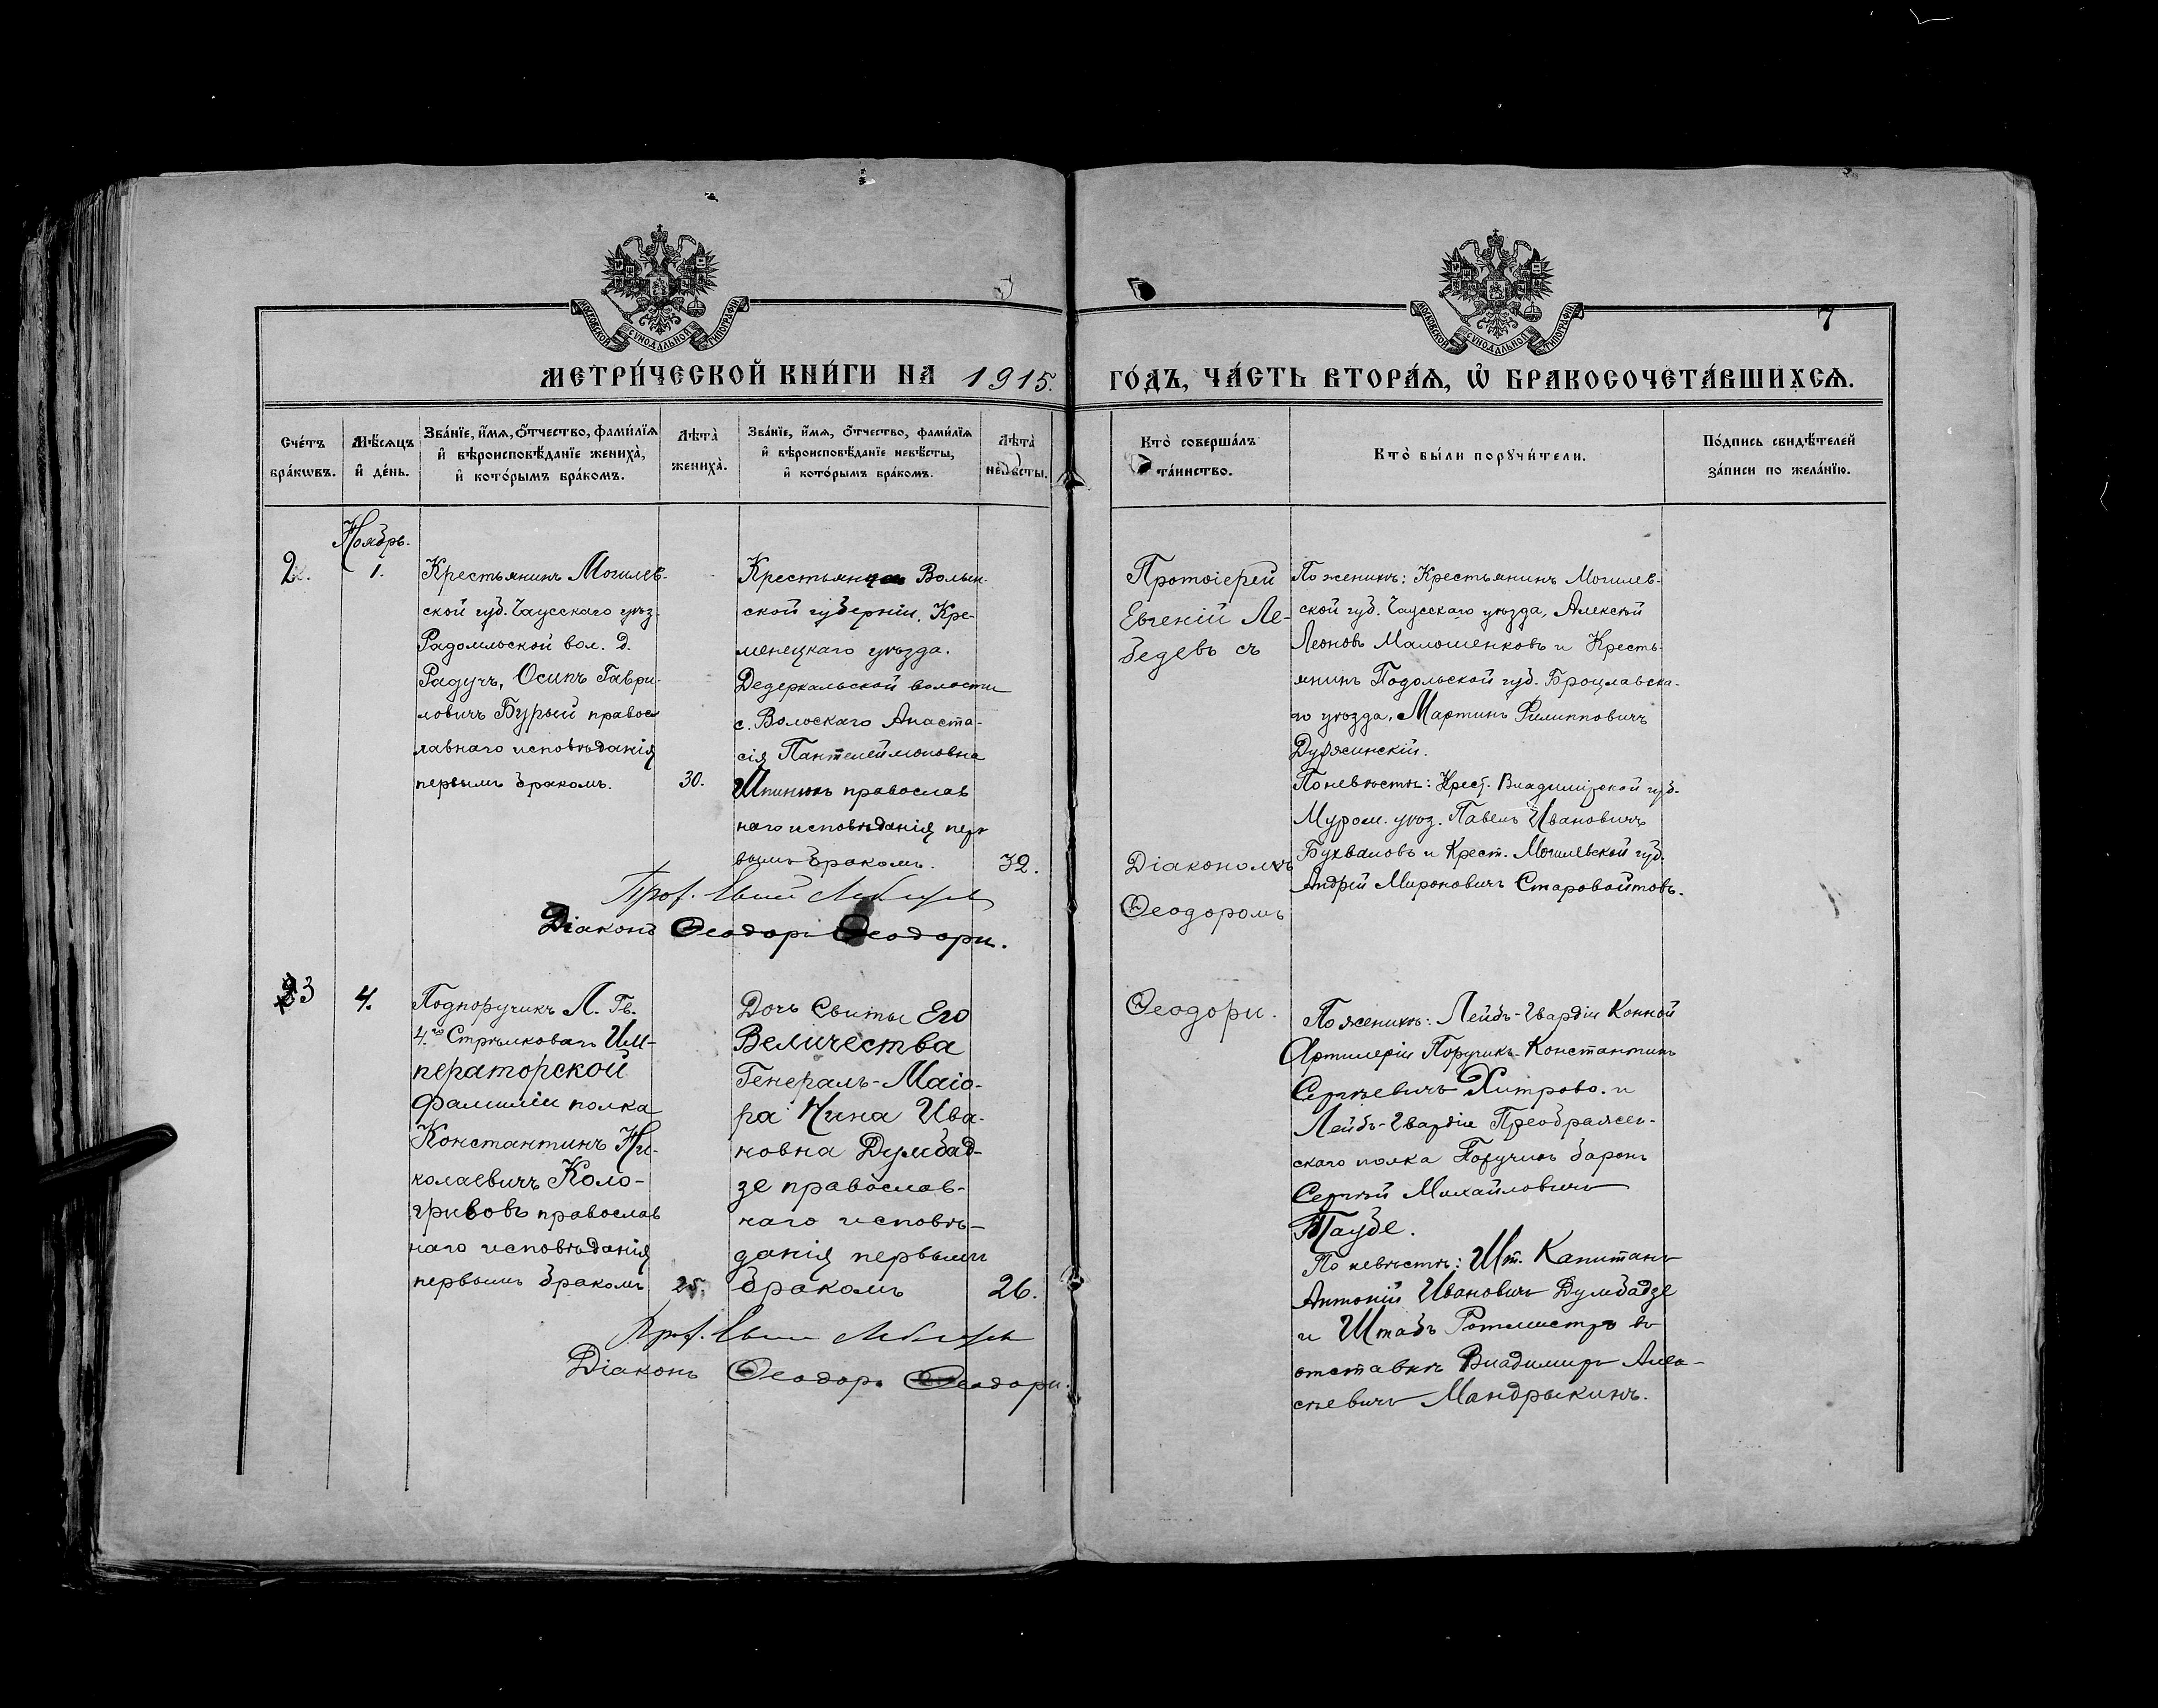 МОСКОВСКОЙ СѴНОДАЛЬНОЙ ТИПОГРАФІИ
МОСКОВСКОЙ СѴНОДАЛЬНОЙ ТИПОГРАФІИ
7
МЕТРИ́ЧЕСКОЙ КНИ́ГИ НА 1915.
ГО́ДЪ, ЧА́СТЬ ВТОРА́Ѧ, Ѽ БРАКОСОЧЕТА́ВШИХСѦ.
Сче́тъ бра́кѡвъ.
Мѣ́сѧцъ и҆ де́нь.
Зва́нїе, и҆́мѧ, ѻ҆́тчество, фами́лїѧ и҆ вѣроисповѣ́данїе жениха̀, и҆ кото́рымъ бра́комъ.
Лѣта̀ жениха̀.
Зва́нїе, и҆́мѧ, ѻ҆́тчество, фами́лїѧ и҆ вѣроисповѣ́данїе невѣ́сты, и҆ кото́рымъ бра́комъ.
Лѣта̀ невѣ́сты.
Кто̀ соверша́лъ та́инство.
Кто̀ бы́ли порꙋчи́тели.
По́дпись свидѣ́телей за́писи по жела́нїю.
Ноябрь.
2.
1.
Крестьянинъ Могилев-
ской губ. Чаусскаго уѣз.
Радомльской вол. д.
Радучъ, Осипъ Гаври-
ловичъ Бурый правос
лавнаго исповѣданія
первымъ бракомъ.
30.
Крестьянка Волын-
ской губерніи, Кре-
менецкаго уѣзда.
Дедеркальской волости
с. Волоскаго Анаста-
сія Пантелеймоновна
Шпинюкъ православ
наго исповѣданія пер
вымъ бракомъ.
32.
Протоіерей
Евгеній Ле-
бедевъ съ
Діакономъ
Ѳеодоромъ
По женихѣ: Крестьянинъ Могилев-
ской губ. Чаусскаго уѣзда, Алексѣй
Леоновъ Малошенковъ и Кресть-
янинъ Подольской губ. Броцлавска-
го уѣзда, Мартинъ Филипповичъ
По невѣстѣ: Крест. Владимірской губ.
Муром. уѣз. Павелъ Ивановичъ
Бухваловъ и Крест. Могилевской губ.
Андрей Мироновичъ Старовойтовъ.
Прот. Евгеній Лебедевъ
Діаконъ Ѳеодоръ Ѳеодори.
3
4.
Подпоручикъ Л. Гв.
4.го Стрѣлковаго Им-
ператорской
Фамиліи полка
Константинъ Ни-
колаевичъ Коло-
гривовъ православ
наго исповѣданія
первымъ бракомъ
25.
Дочь Свиты Его
Величества
Генералъ-Маіо-
ра Нина Ива-
новна Думбад-
зе православ-
наго исповѣ-
данія первымъ
бракомъ
26.
Ѳеодори.
По женихѣ: Лейбъ-Гвардіи Конной
Артилеріи Поручикъ Константинъ
Сергѣевичъ Хитрово. и
Лейбъ-Гвардіи Преображен-
скаго полка Поручикъ баронъ
Сергѣй Михайловичъ
Таубе.
По невѣстѣ: Шт. Капитанъ
Антоній Ивановичъ Думбадзе
и Штабъ Ротмистръ въ
отставкѣ Владимиръ Алек-
сѣевичъ Мандрыкинъ.
Прот. Евгеній Лебедевъ
Діаконъ Ѳеодоръ Ѳеодори.